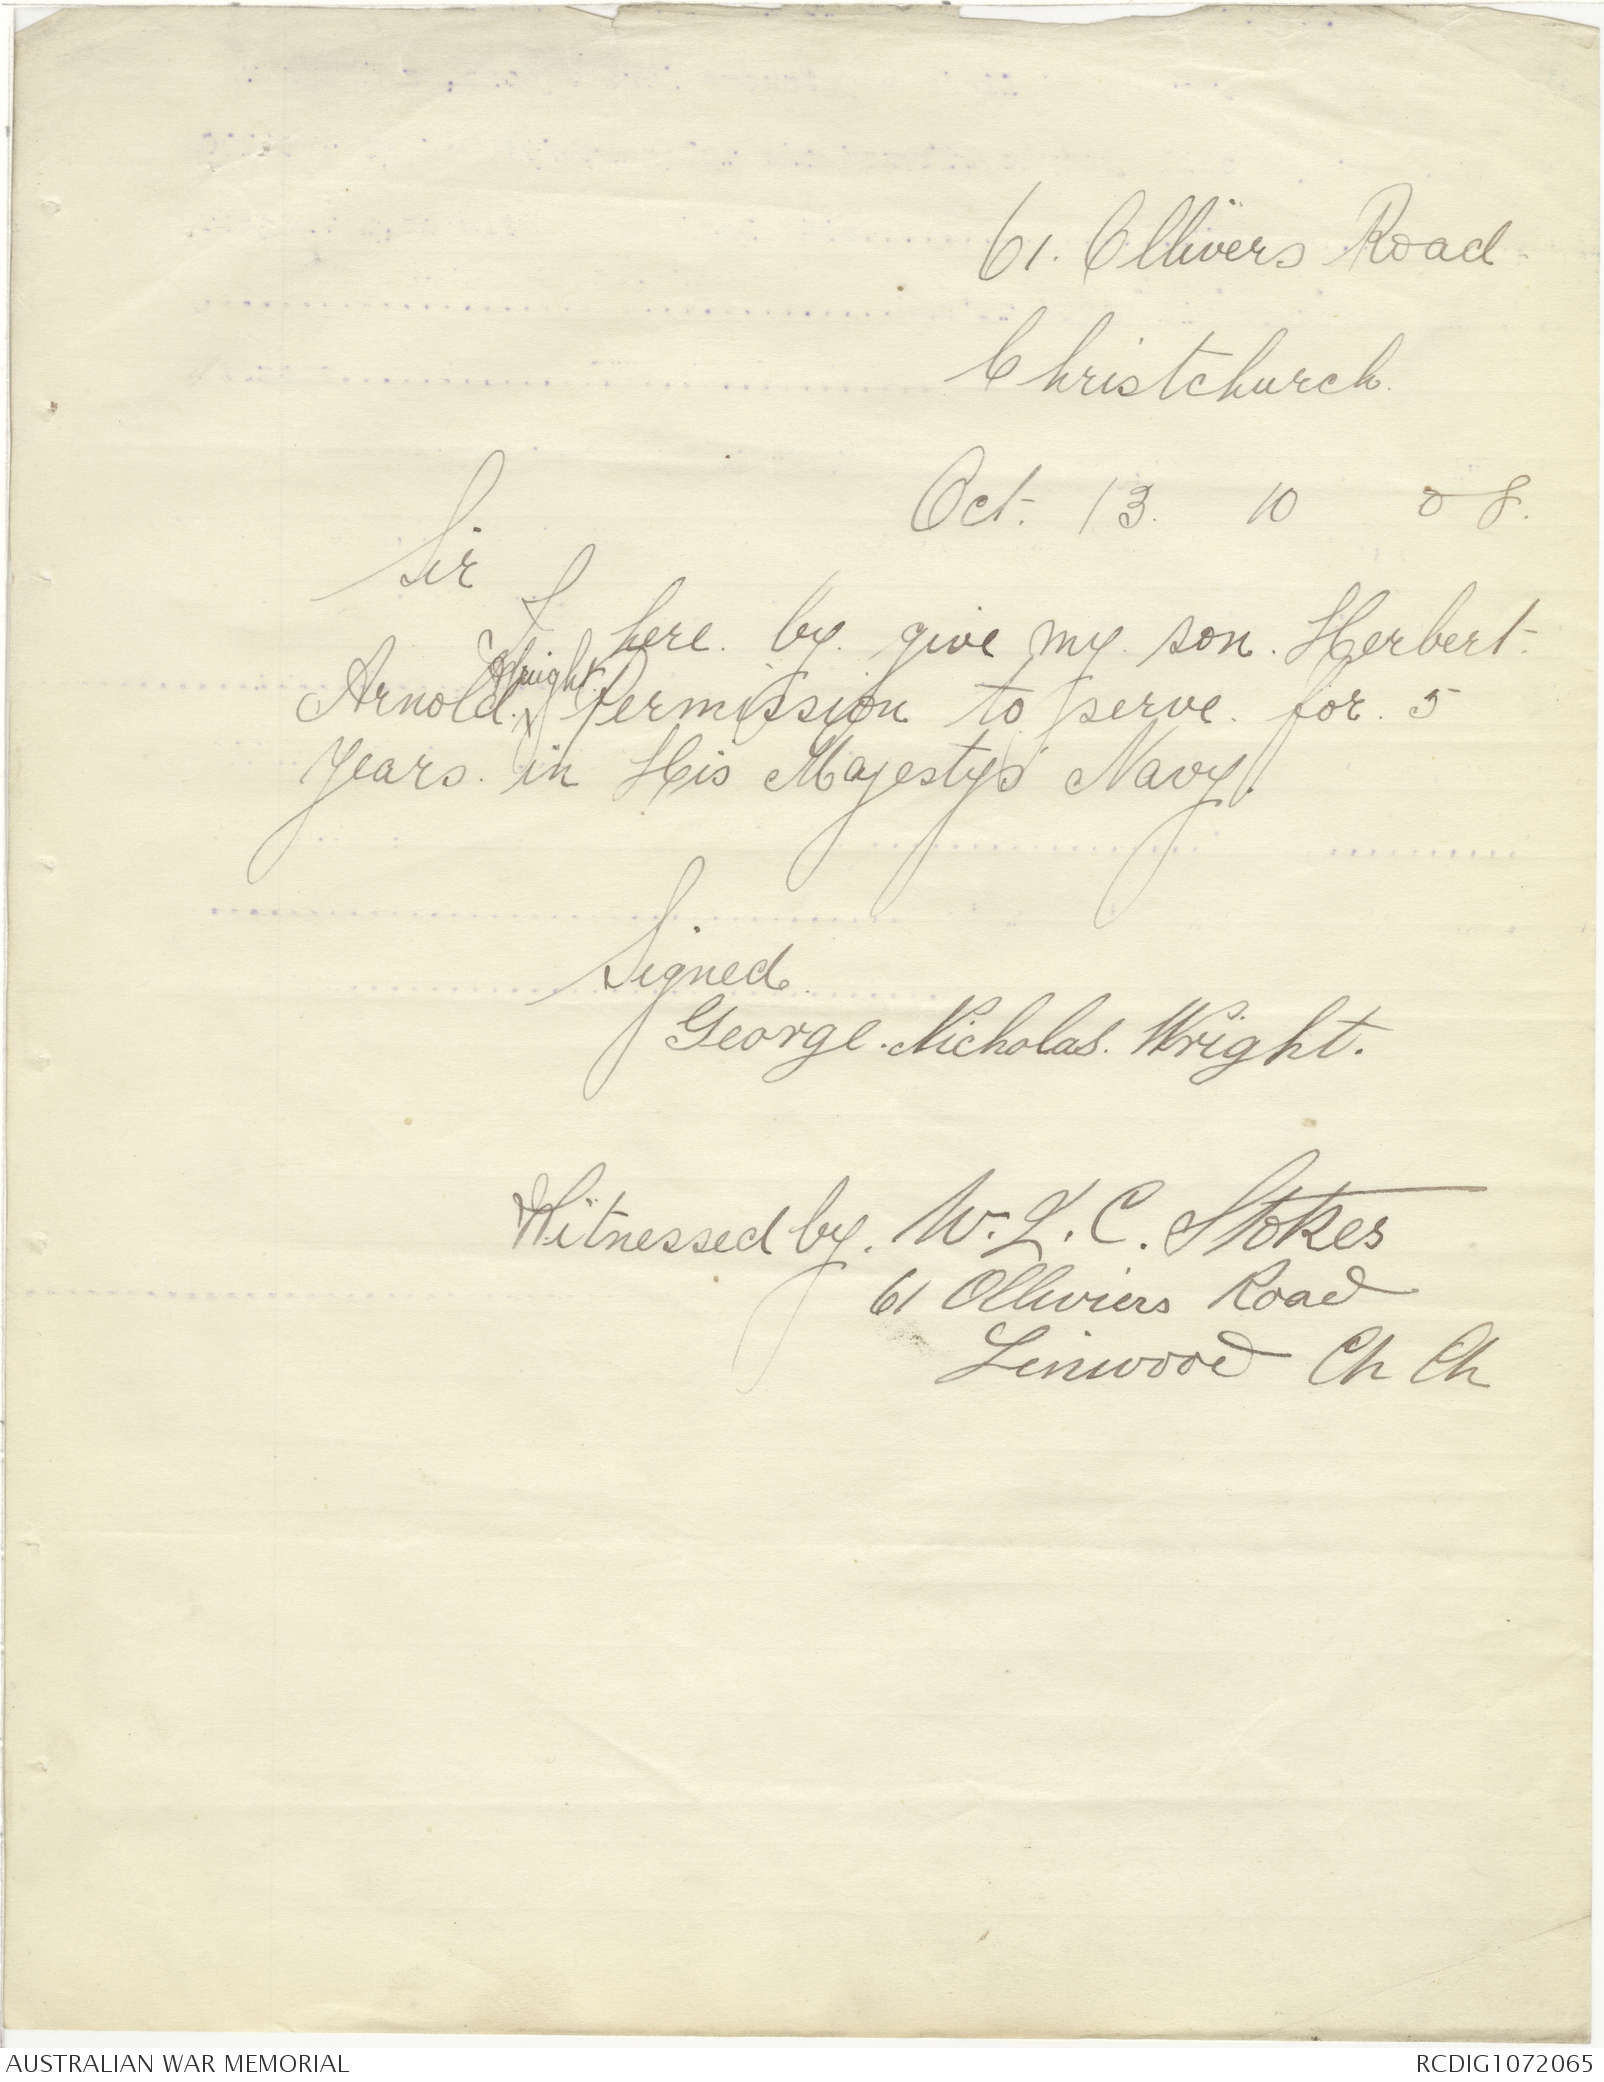 61. Ollivers Road
Christchurch.
Oct. 13. 10 08.
Sir
I here. by. give my. son. Herbert.
Arnold. Wright. Permission to serve. for. 5
years. in His Majestys Navy.
Signed.
George. Nicholas. Wright.
Witnessed by. W. L. C. Stokes
61 Olliviers Road
Linwood Ch Ch
AUSTRALIAN WAR MEMORIAL
RCDIG1072065